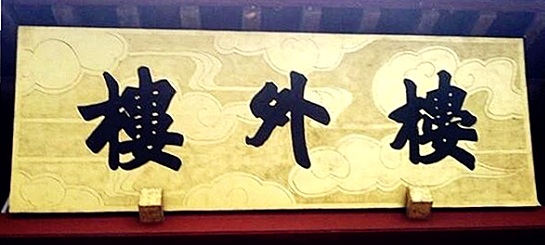 樓外樓